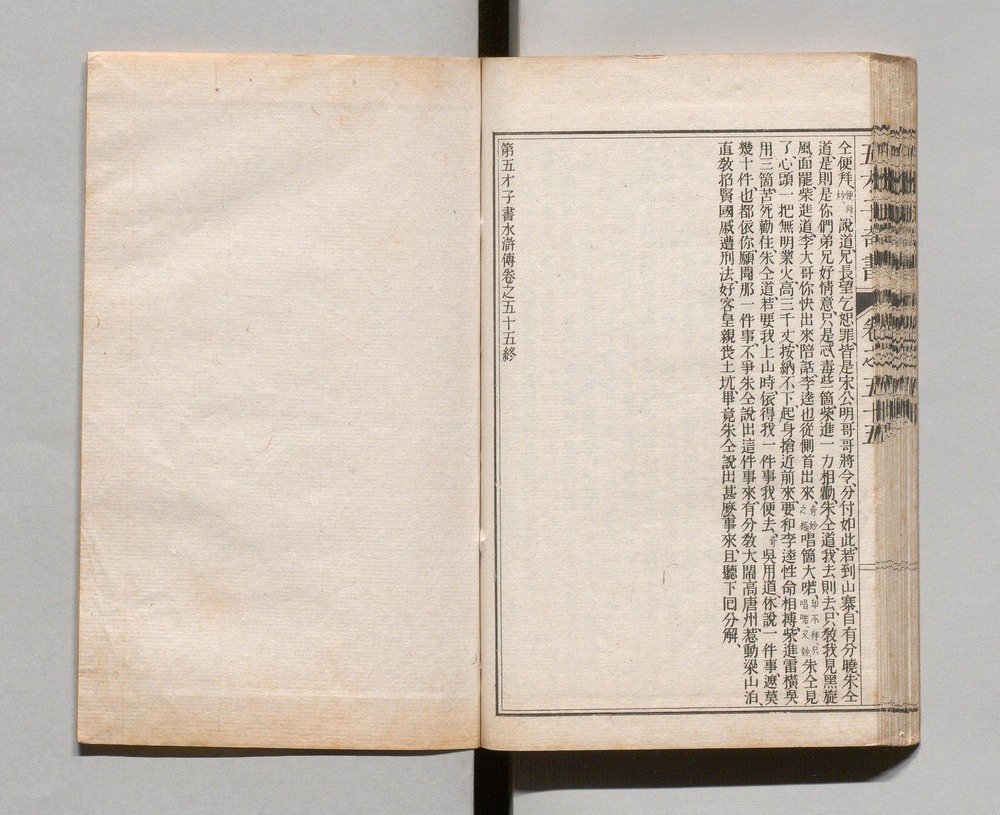 五才子奇書 卷之五十五
仝便拜、便拜妙、說道、兄長、望乞恕罪、皆是宋公明哥哥將令、分付如此、若到山寨、自有分曉、朱仝
道、是則是你們弟兄好情意、只是忒毒些箇、柴進一力相勸、朱仝道、我去則去、只敎我見黑旋
風面罷、柴進道、李大哥、你快出來陪話、李逵也從側首出來、奇妙之極、唱箇大喏、却不拜只唱喏、又妙、朱仝見
了、心頭一把無明業火、高三千丈、按納不下、起身搶近前來、要和李逵性命相搏、柴進雷橫吳
用三箇苦死勸住、朱仝道、若要我上山時、依得我一件事、我便去、奇、吳用道、休說一件事、遮莫
幾十件也都依你、願聞那一件事、不爭朱仝說出這件事來、有分敎大鬧高唐州、惹動梁山泊、
直敎招賢國戚遭刑法、好客皇親喪土坑、畢竟朱仝說出甚麽事來、且聽下回分解、
第五才子書水滸傳卷之五十五終